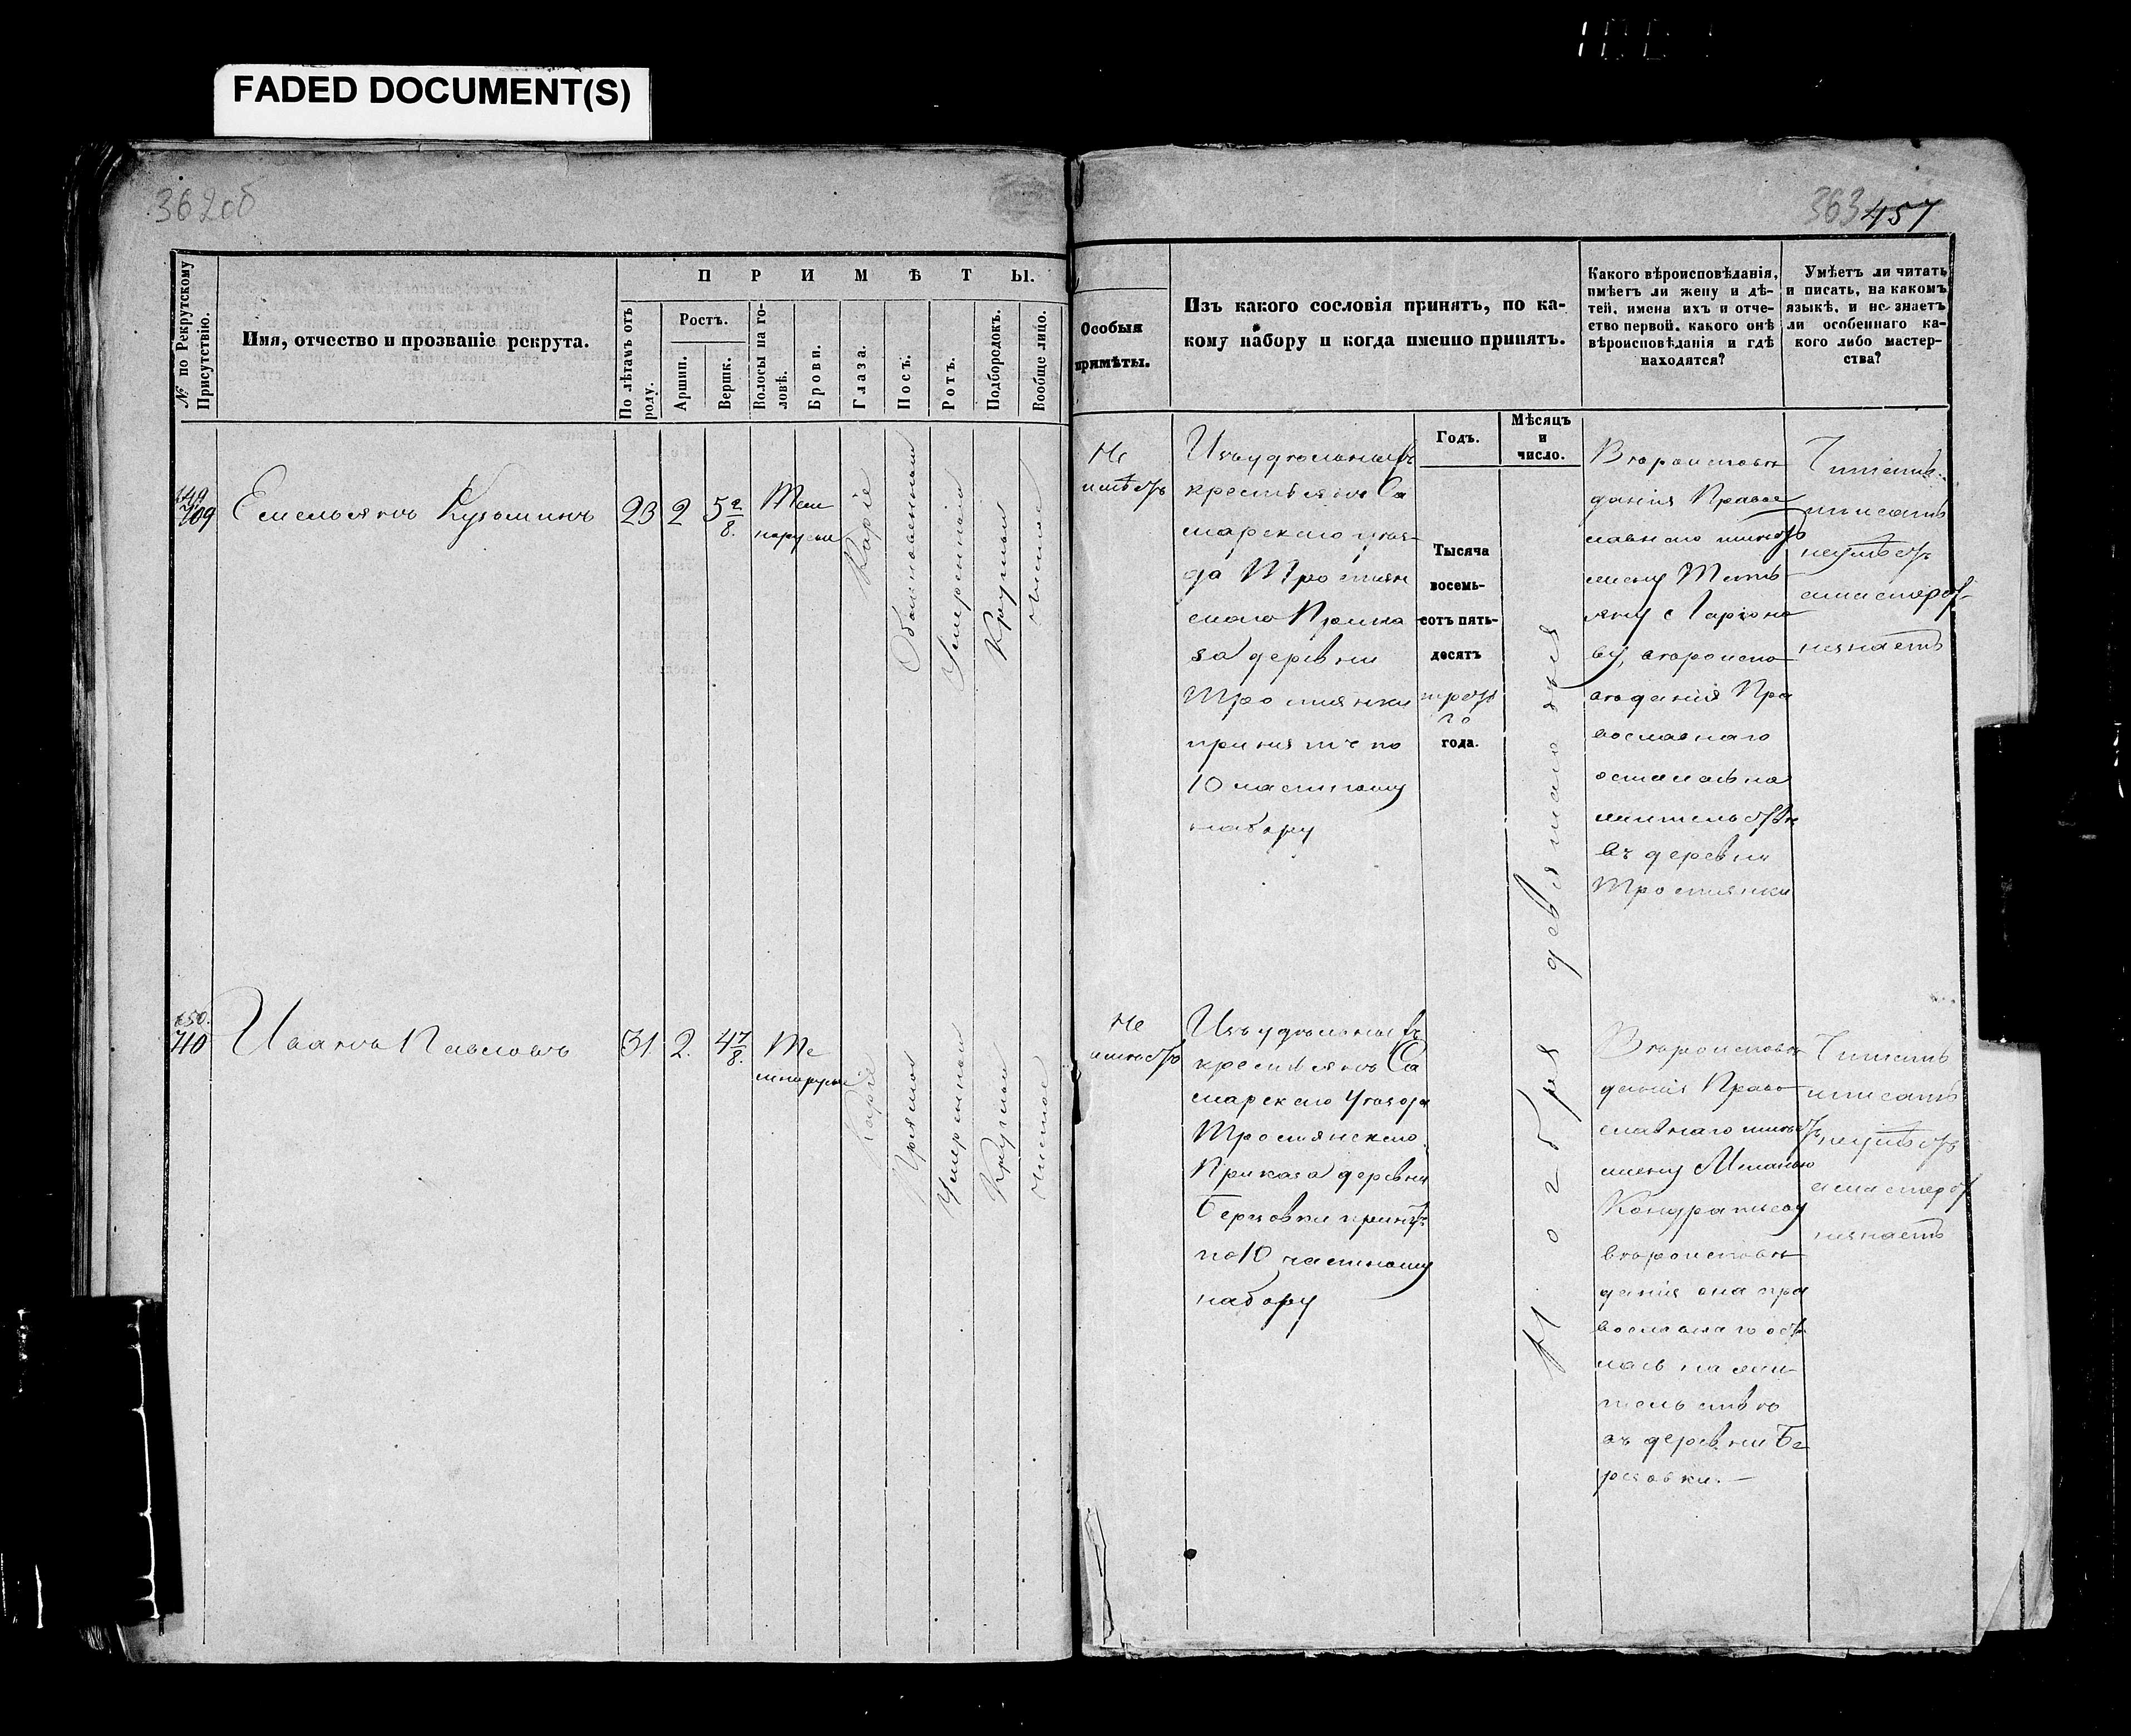 FADED DOCUMENT(S)
362об
363 457
№ по Рекрутскому Присутствію.
Имя, отчество и прозваніе рекрута.
ПРИМѢТЫ.
По лѣтамъ отъ роду.
Ростъ.
Аршин.
Вершк.
Волосы на головѣ.
Брови.
Глаза.
Носъ.
Ротъ.
Подбородокъ.
Вообще лицо.
Особыя
примѣты.
Изъ какого сословія принятъ, по ка-
кому набору и когда именно принятъ.
Годъ.
Мѣсяцъ
и
число.
Какого вѣроисповѣданія,
имѣетъ ли жену и дѣ-
тей, имена ихъ и отче-
ство первой, какого онѣ
вѣроисповѣданія и гдѣ
находятся?
Умѣетъ ли читать
и писать, на какомъ
языкѣ, и не знаетъ
ли особеннаго ка-
кого либо мастер-
ства?
149
709
Емельянъ Кузьминъ
23
2
5 2/8.
Тем
норусые
Каріе
Обыкновенный
Умеренный
Круглый
Чистое
Не
имѣетъ
Изъ удѣльныхъ
крестьянъ Са
марскаго уѣз-
да Тростян
скаго Прика
за деревни
Тростянки
принятъ по
10 частному
набору
Тысяча
восемь-
сотъ пять-
десятъ
третья
го
года.
Ноября девятаго дня
Вѣроисповѣ
данія Право
славнаго имѣетъ
жену Тать
яну Ларіоно
ву, вѣроиспо
вѣданія Пра
вославнаго
осталась на
жительствѣ
въ деревни
Тростянки
Читать
писать
неумѣетъ
мастерст-
незнаетъ
150.
710
Иванъ Павловъ
31.
2.
4 7/8.
Те
мнорусые
Каріе
Прямой
Умеренный
Круглый
Чистое
Не
имѣетъ
Изъ удѣльныхъ
крестьянъ Са
марскаго Уѣзда
Тростянскаго
Приказа деревни
Березовки принятъ
по 10 частному
набору
Вѣроисповѣ
данія Право
славнаго имѣетъ
жену
Кондратьеву
вѣроисповѣ
данія она пра
вославнаго оста
лась на жи-
тельствѣ
въ деревни Бе
резовки. —
Читать
писать
неумѣетъ
а мастерст
незнаетъ